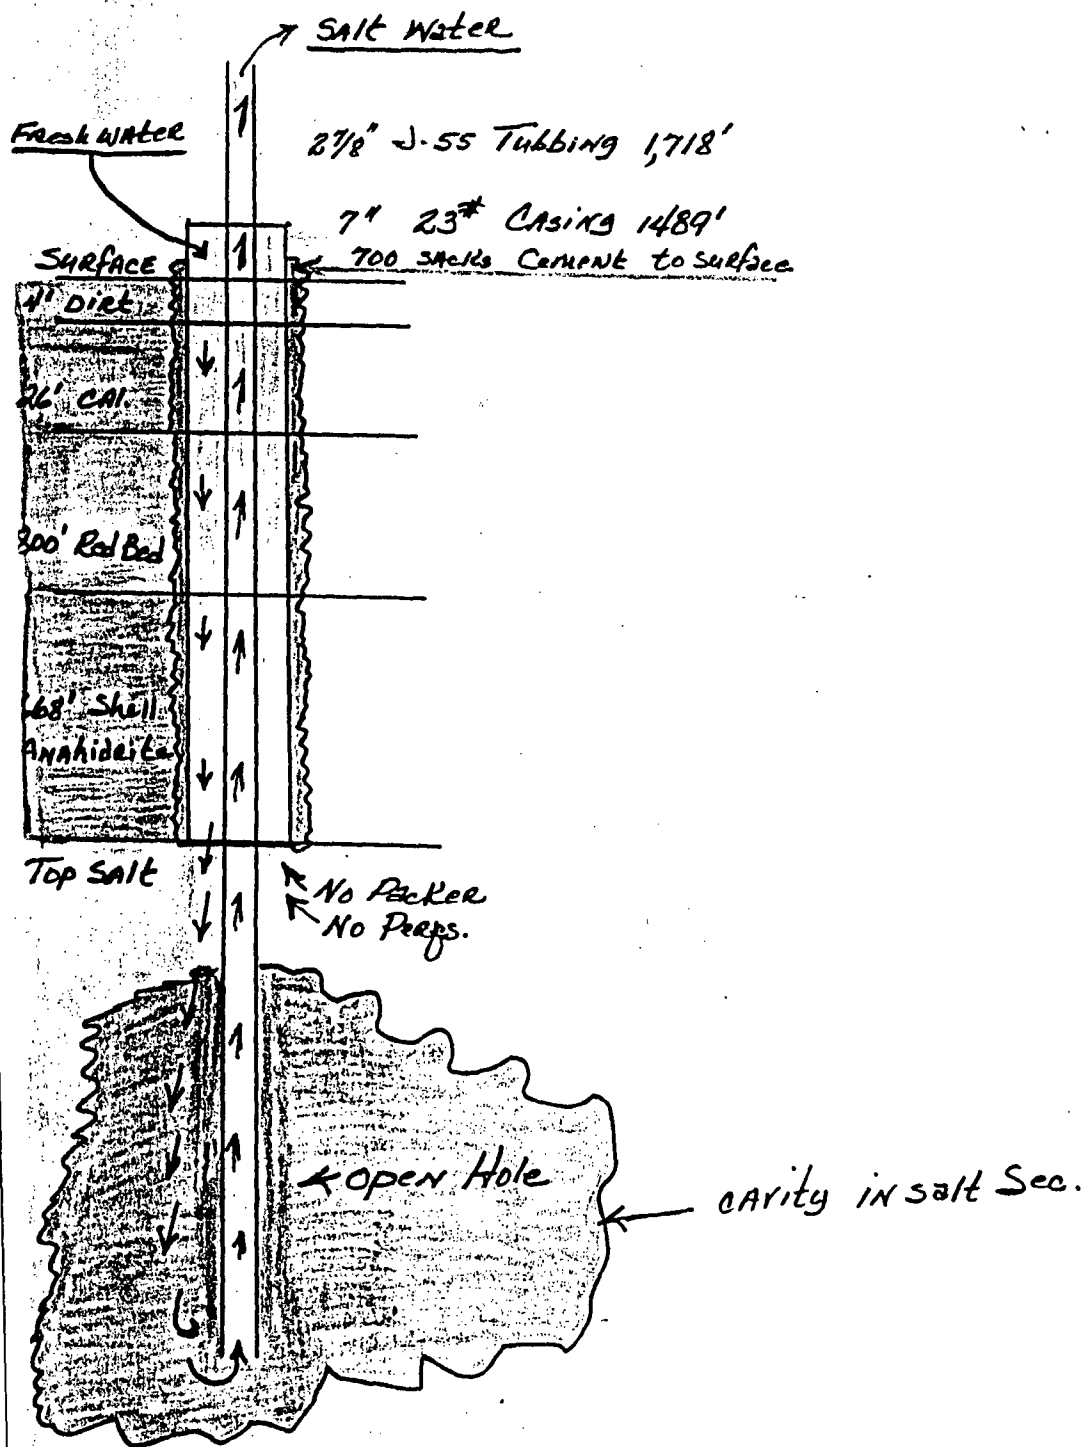 Salt Water
Fresh Water
2 7/8" J-55 Tubbing 1,718'
7" 23# Casing 1489'
700 sacks Cement to surface
Surface
4' Dirt
26' CAl.
300' Red Bed
68' Shell
Anahidrite
Top Salt
No Packer
No Perfs.
Open Hole
cavity in salt Sec.